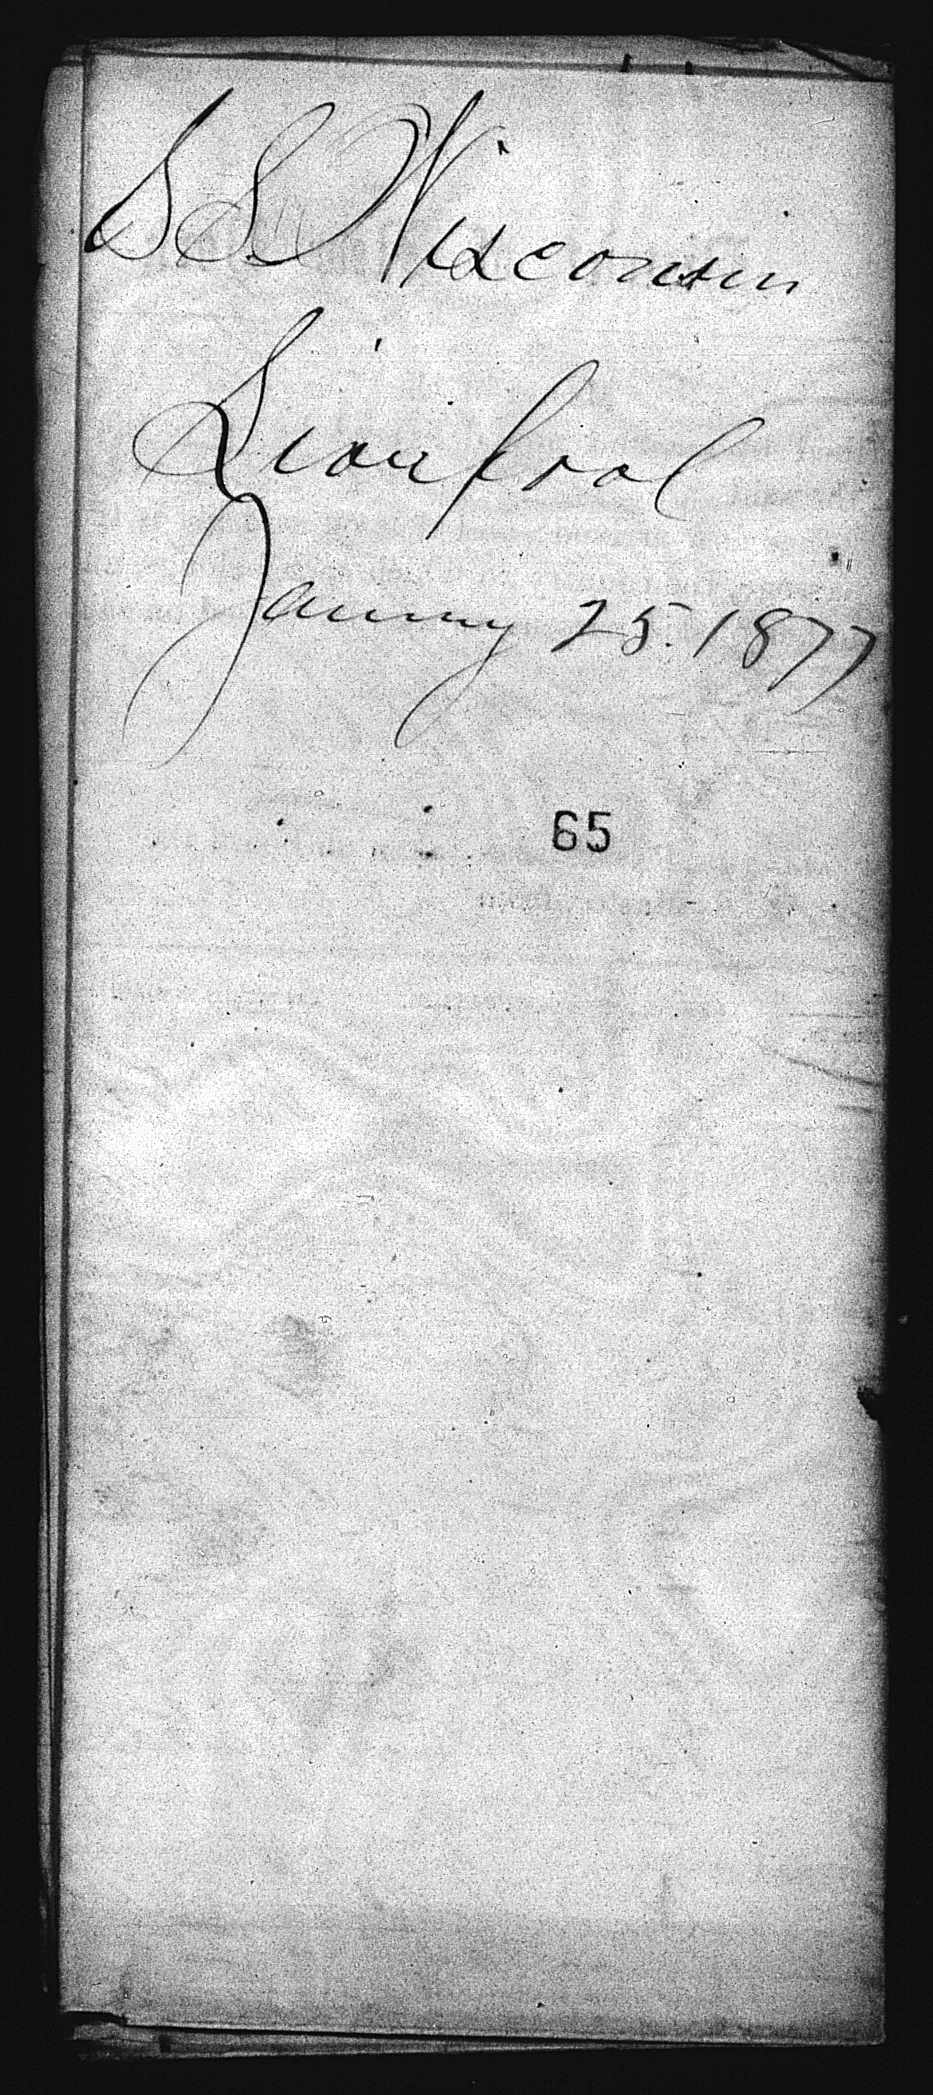 SS Wisconsin
Liverpool
January 25. 1877
65